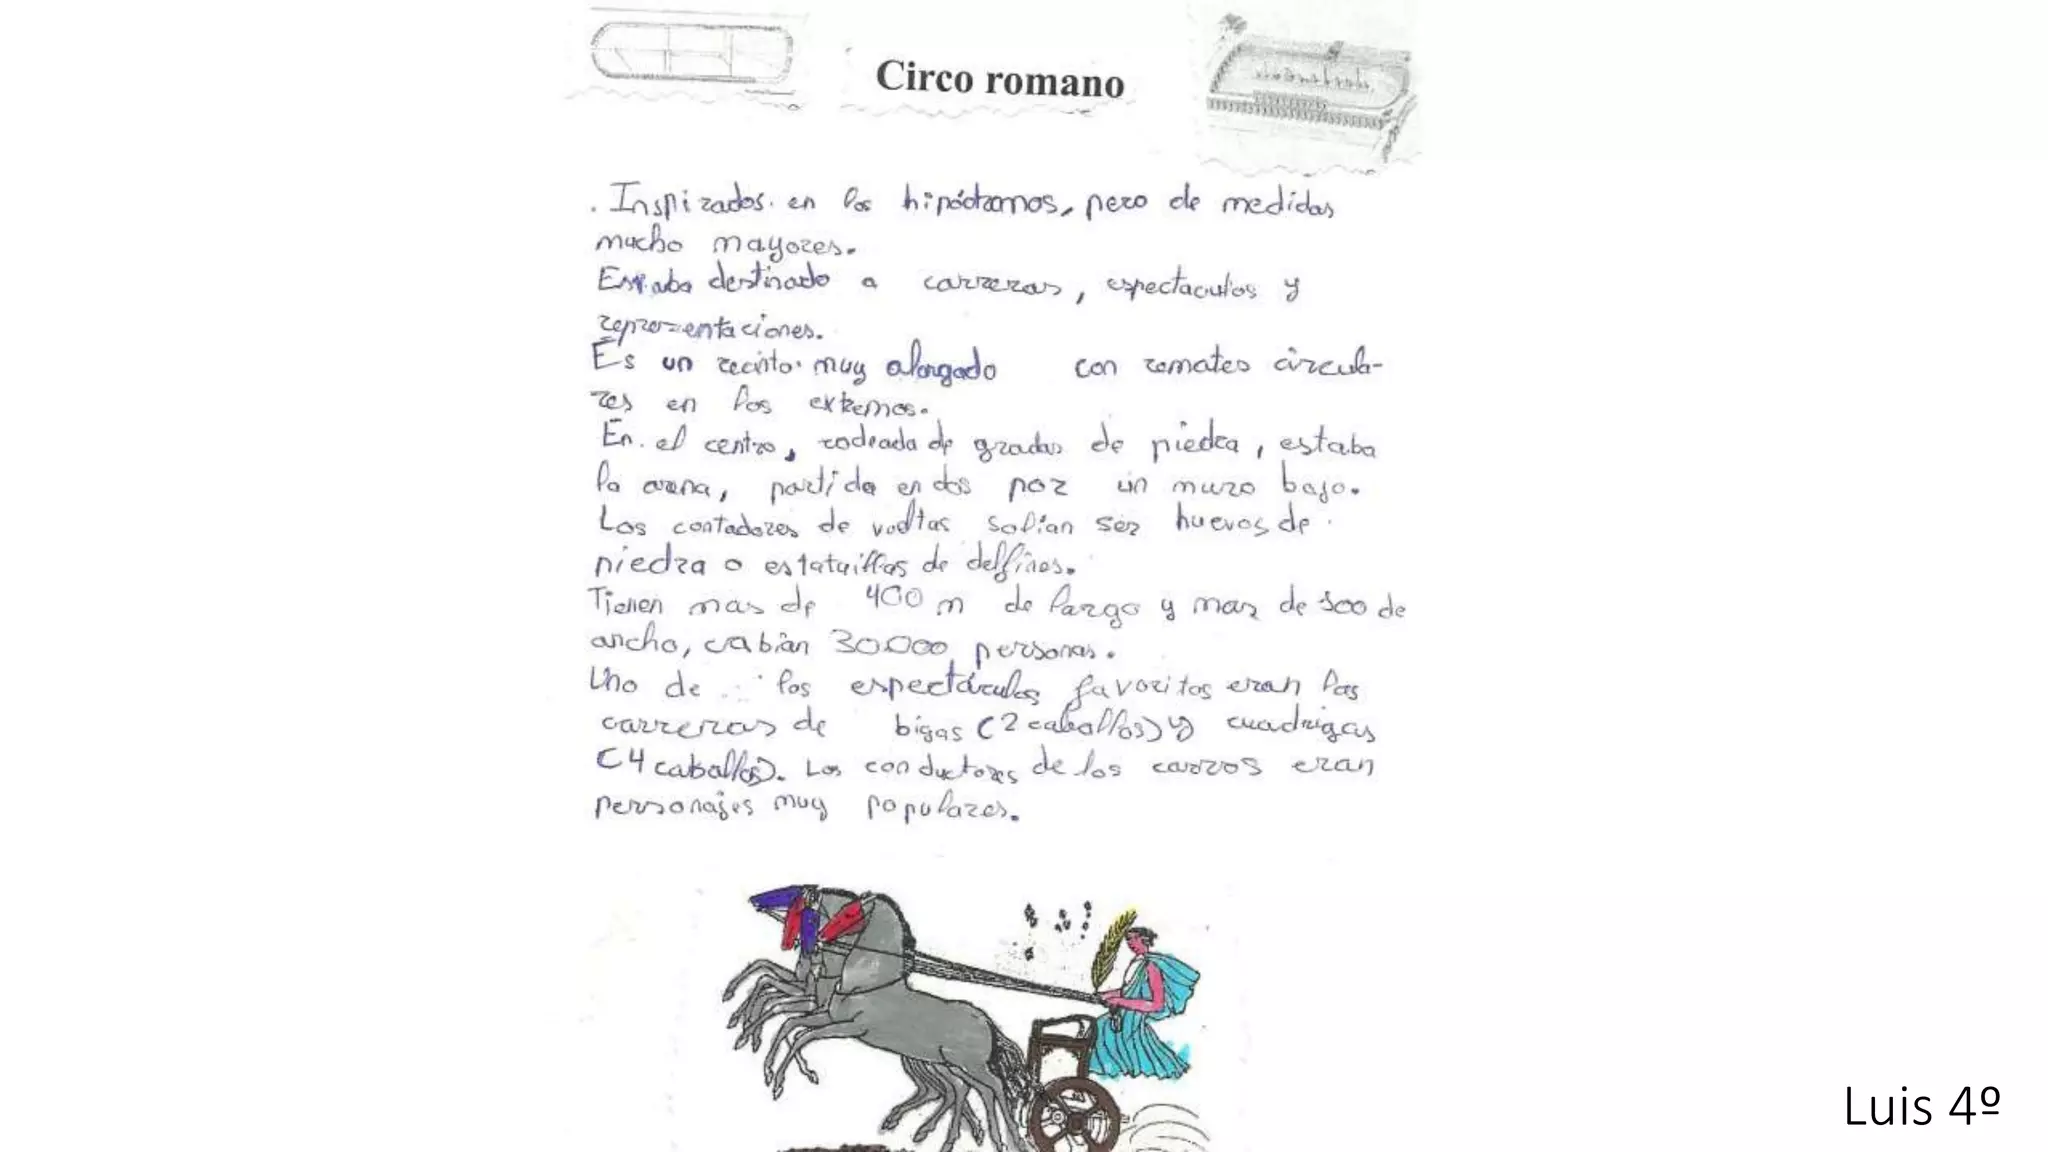 Circo romano
. Inspirados en los hipódromos, pero de medidas
mucho mayores.
Estaba destinado a carreras, espectaculos y
representaciones.
Es un recinto muy alargado con remates circula-
res en los extremos.
En el centro, rodeada de gradas de piedra, estaba
la arena, partida en dos por un muro bajo.
Los contadores de vueltas solian ser huevos de
piedra o estatuillas de delfines.
Tienen mas de 400 m de largo y mas de 100 de
ancho, cabian 30.000 personas.
Uno de los espectáculos favoritos eran las
carreras de bigas (2 caballos) y cuadrigas
(4 caballos). Los conductores de los carros eran
personajes muy populares.
Luis 4º